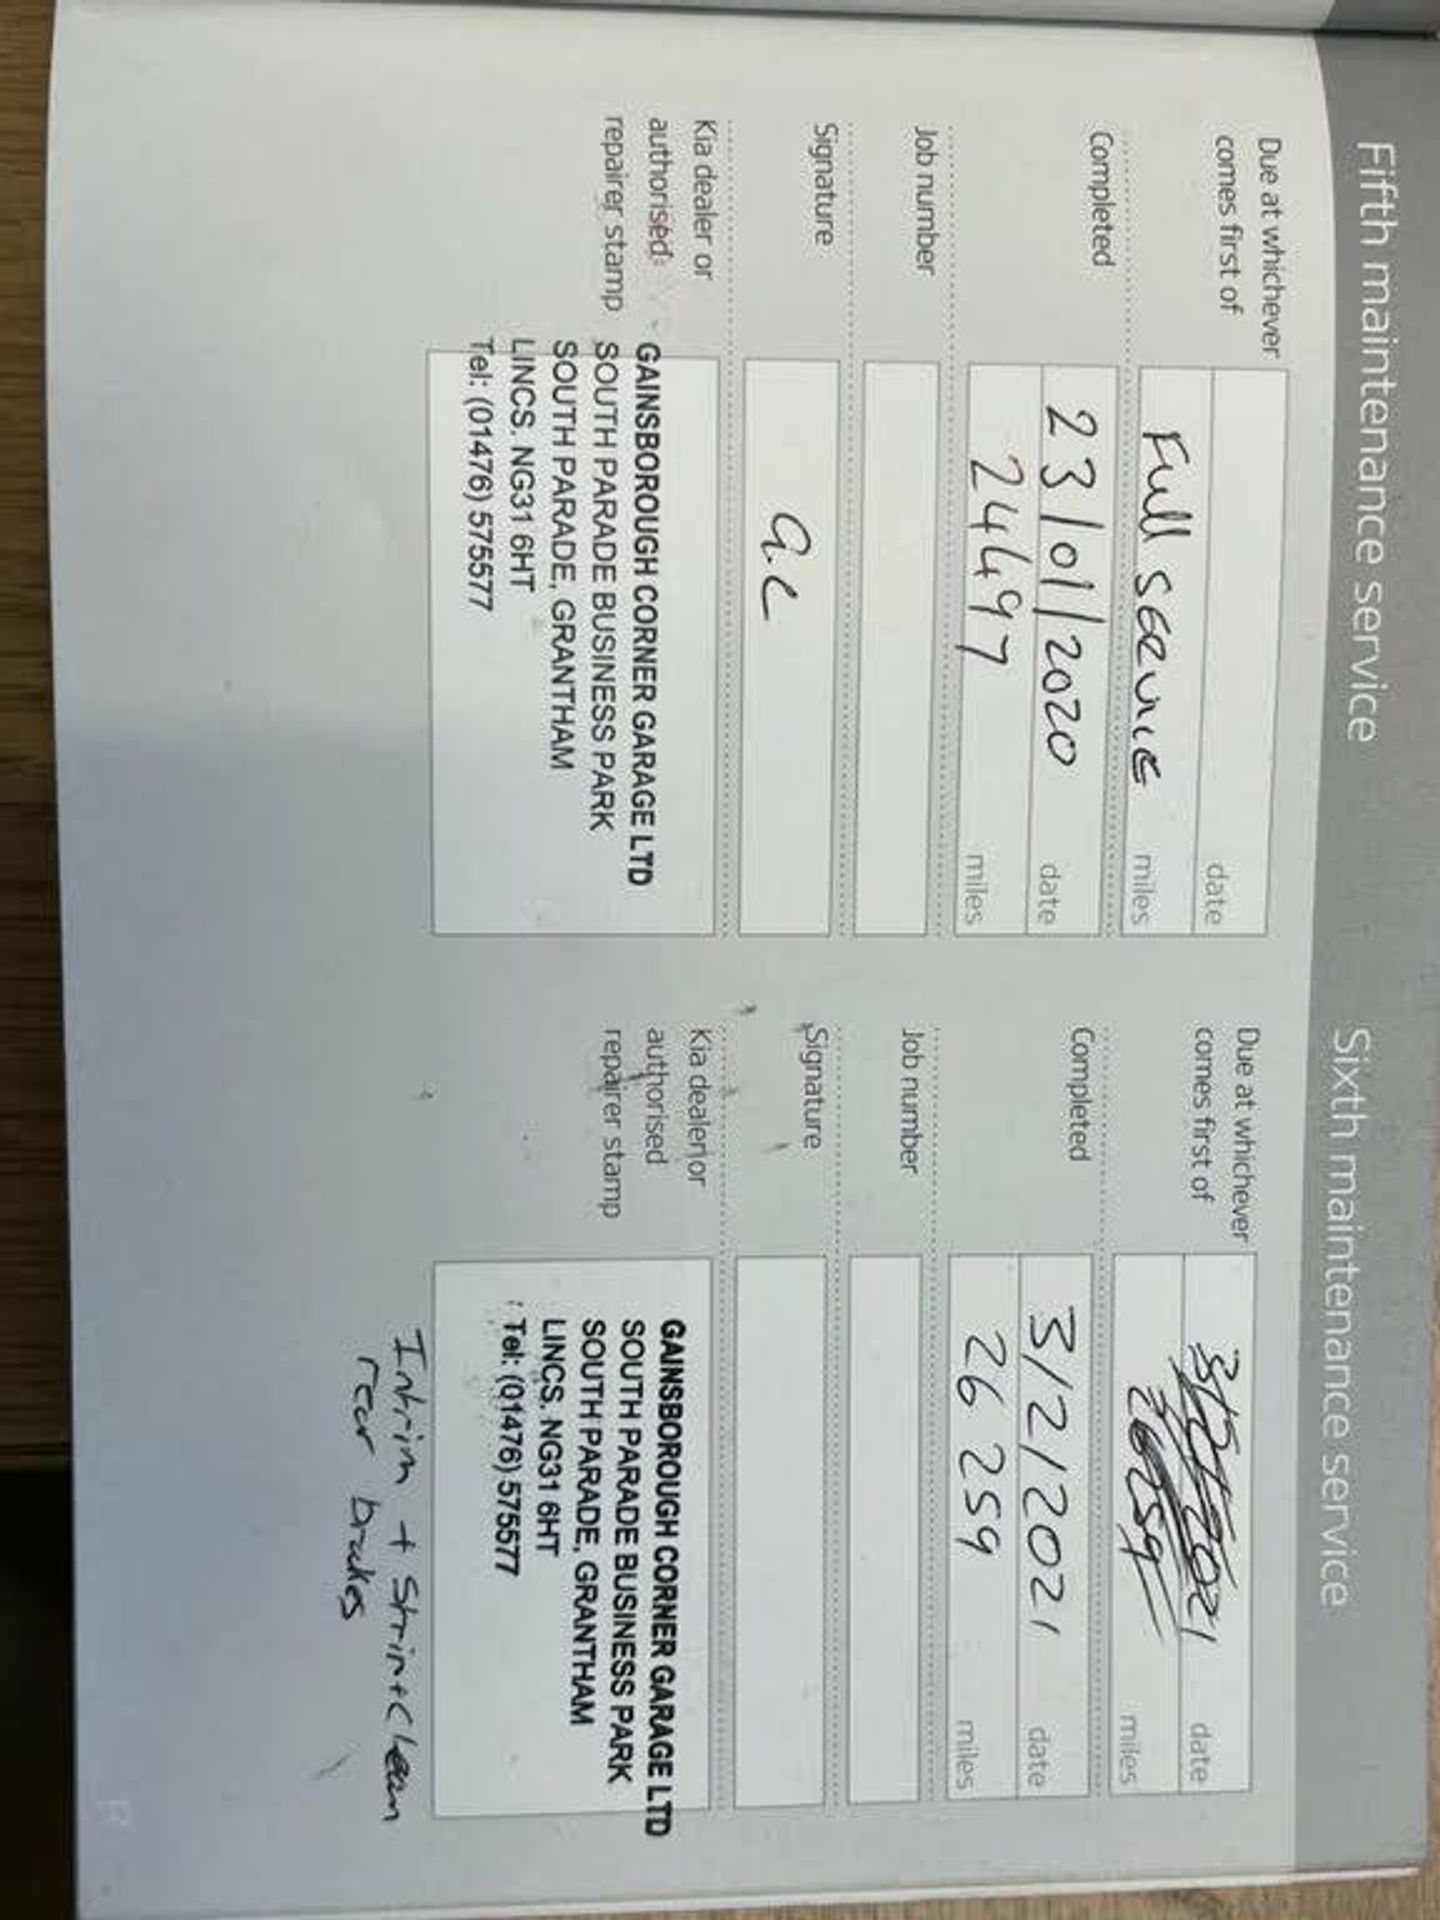 Fifth maintenance service
Due at whichever
comes first of
date
Full service miles
Completed
23/01/2020 date
24497 miles
Job number
Signature
a.c
Kia dealer or
authorised
repairer stamp
GAINSBOROUGH CORNER GARAGE LTD
SOUTH PARADE BUSINESS PARK
SOUTH PARADE, GRANTHAM
LINCS. NG31 6HT
Tel: (01476) 575577
Sixth maintenance service
Due at whichever
comes first of
date
26259 miles
Completed
3/2/2021 date
26 259 miles
Job number
Signature
Kia dealer or
authorised
repairer stamp
GAINSBOROUGH CORNER GARAGE LTD
SOUTH PARADE BUSINESS PARK
SOUTH PARADE, GRANTHAM
LINCS. NG31 6HT
Tel: (01476) 575577
Intrim + Strin+Clean
rear brakes